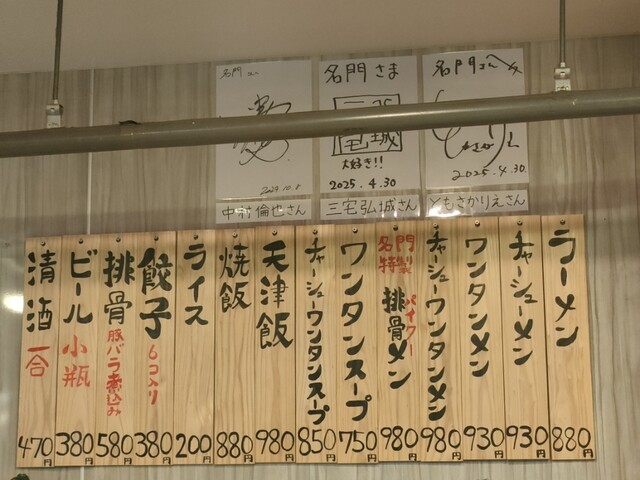 名門さん
2024.10.8
中村倫也さん
名門さま
三宅
弘城
大好き!!
2025.4.30
三宅弘城さん
名門さんへ
2025.4.30
ともさかりえさん
ラーメン 880円
チャーシューメン 930円
ワンタンメン 930円
チャーシューワンタンメン 980円
名門特製 排骨メン パイクー 980円
ワンタンスープ 750円
チャーシューワンタンスープ 850円
天津飯 980円
焼飯 880円
ライス 200円
餃子 6コ入り 380円
排骨 豚バラ煮込み 580円
ビール 小瓶 380円
清酒 一合 470円